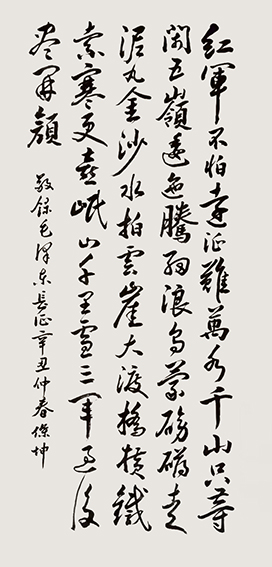 紅軍不怕遠征難萬水千山只等
閑五嶺逶迤騰細浪烏蒙磅礴走
泥丸金沙水拍雲崖大渡橋橫鐵
索寒更喜岷山千里雪三軍過後
盡開顏
敬錄毛澤東長征辛丑仲春傑坤